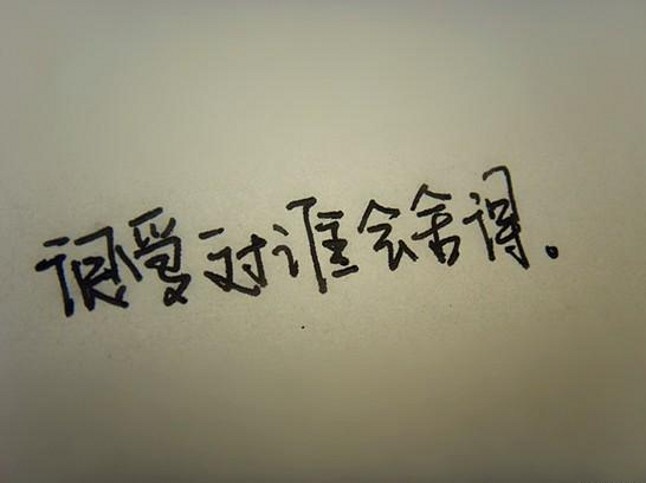 很爱过谁会舍得。